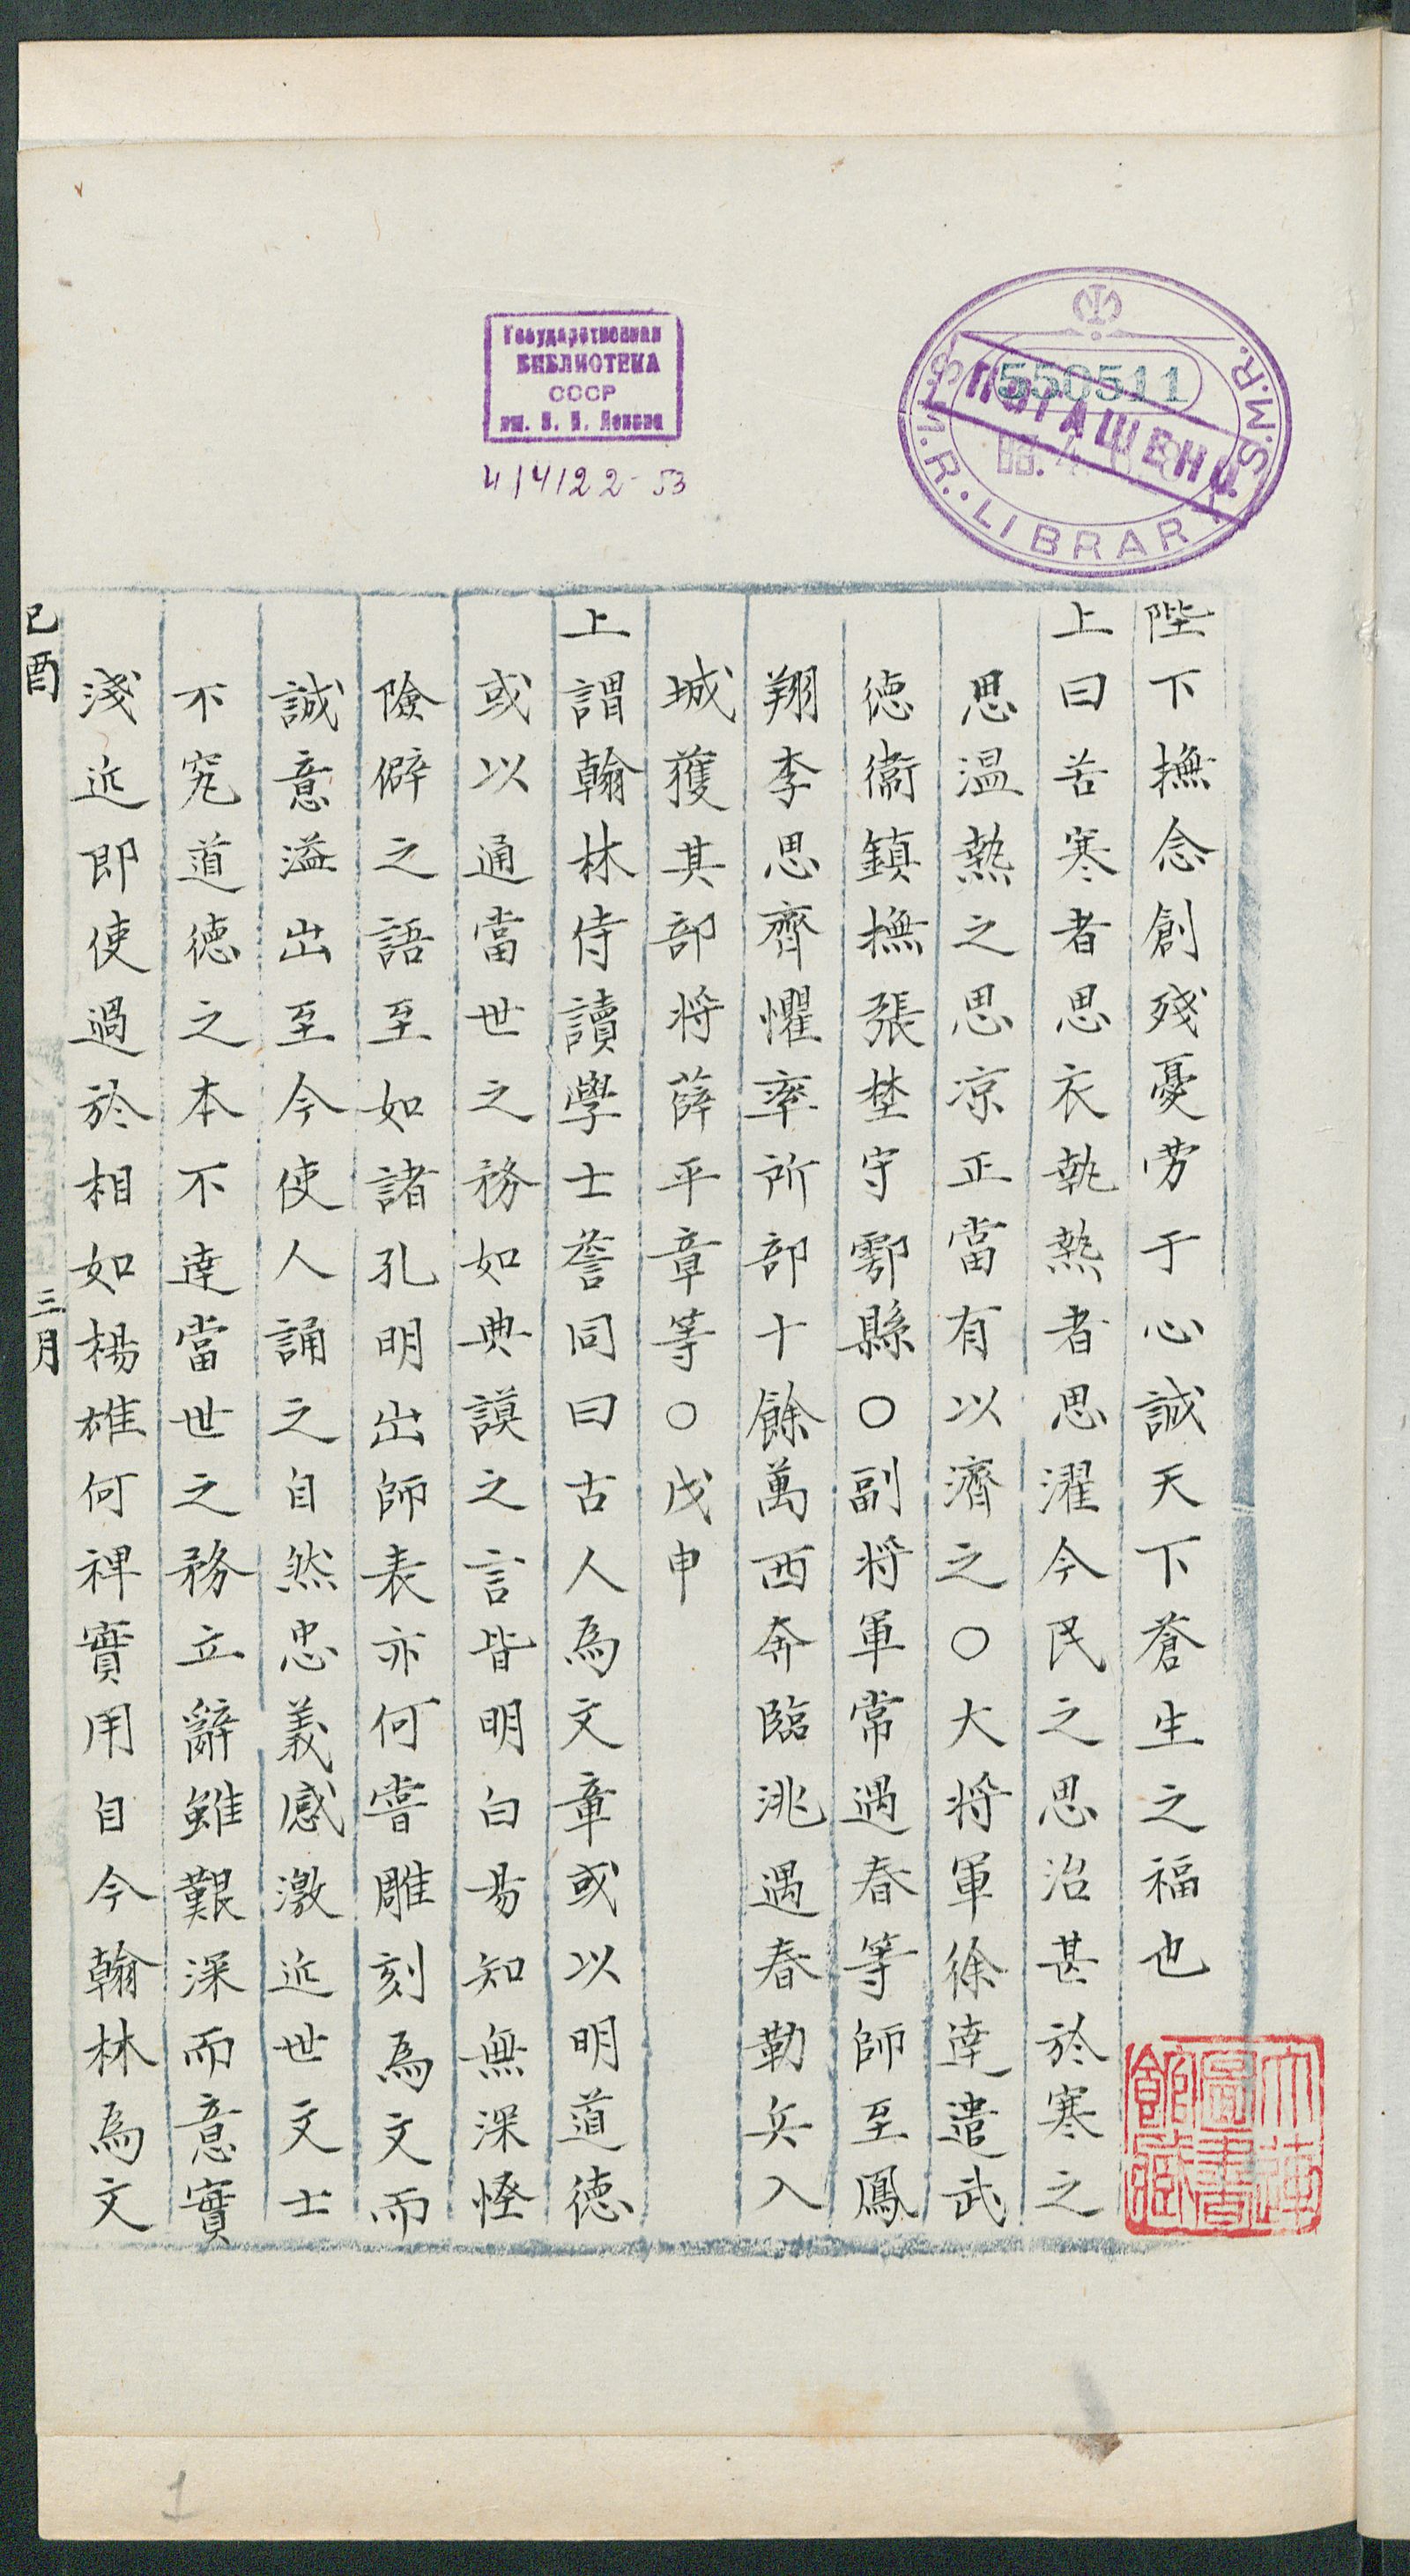 陛下撫念創殘憂劳于心誠天下蒼生之福也
上曰苦寒者思衣執熱者思濯今民之思治甚於寒之
思温熱之思凉正當有以濟之○大將軍徐達遣武
徳衞鎮撫張埜守鄠縣○副將軍常遇春等師至鳳
翔李思齊懼率所部十餘萬西奔臨洮遇春勒兵入
城獲其部將薛平章等○戊申
上謂翰林侍讀學士詹同曰古人為文章或以明道徳
或以通當世之務如典謨之言皆明白易知無深怪
險僻之語至如諸孔明出師表亦何嘗雕刻為文而
誠意溢出至今使人誦之自然忠義感激近世文士
不究道徳之本不達當世之務立辭雖艱深而意實
淺近即使過於相如楊雄何裨實用自今翰林為文
己酉
三月
大連
圖書
館藏
Государственная
БИБЛИОТЕКА
СССР
им. В. И. Ленина
414122-53
550511
ПОГАШЕНО
S.M.R. LIBRARY S.M.R.
1